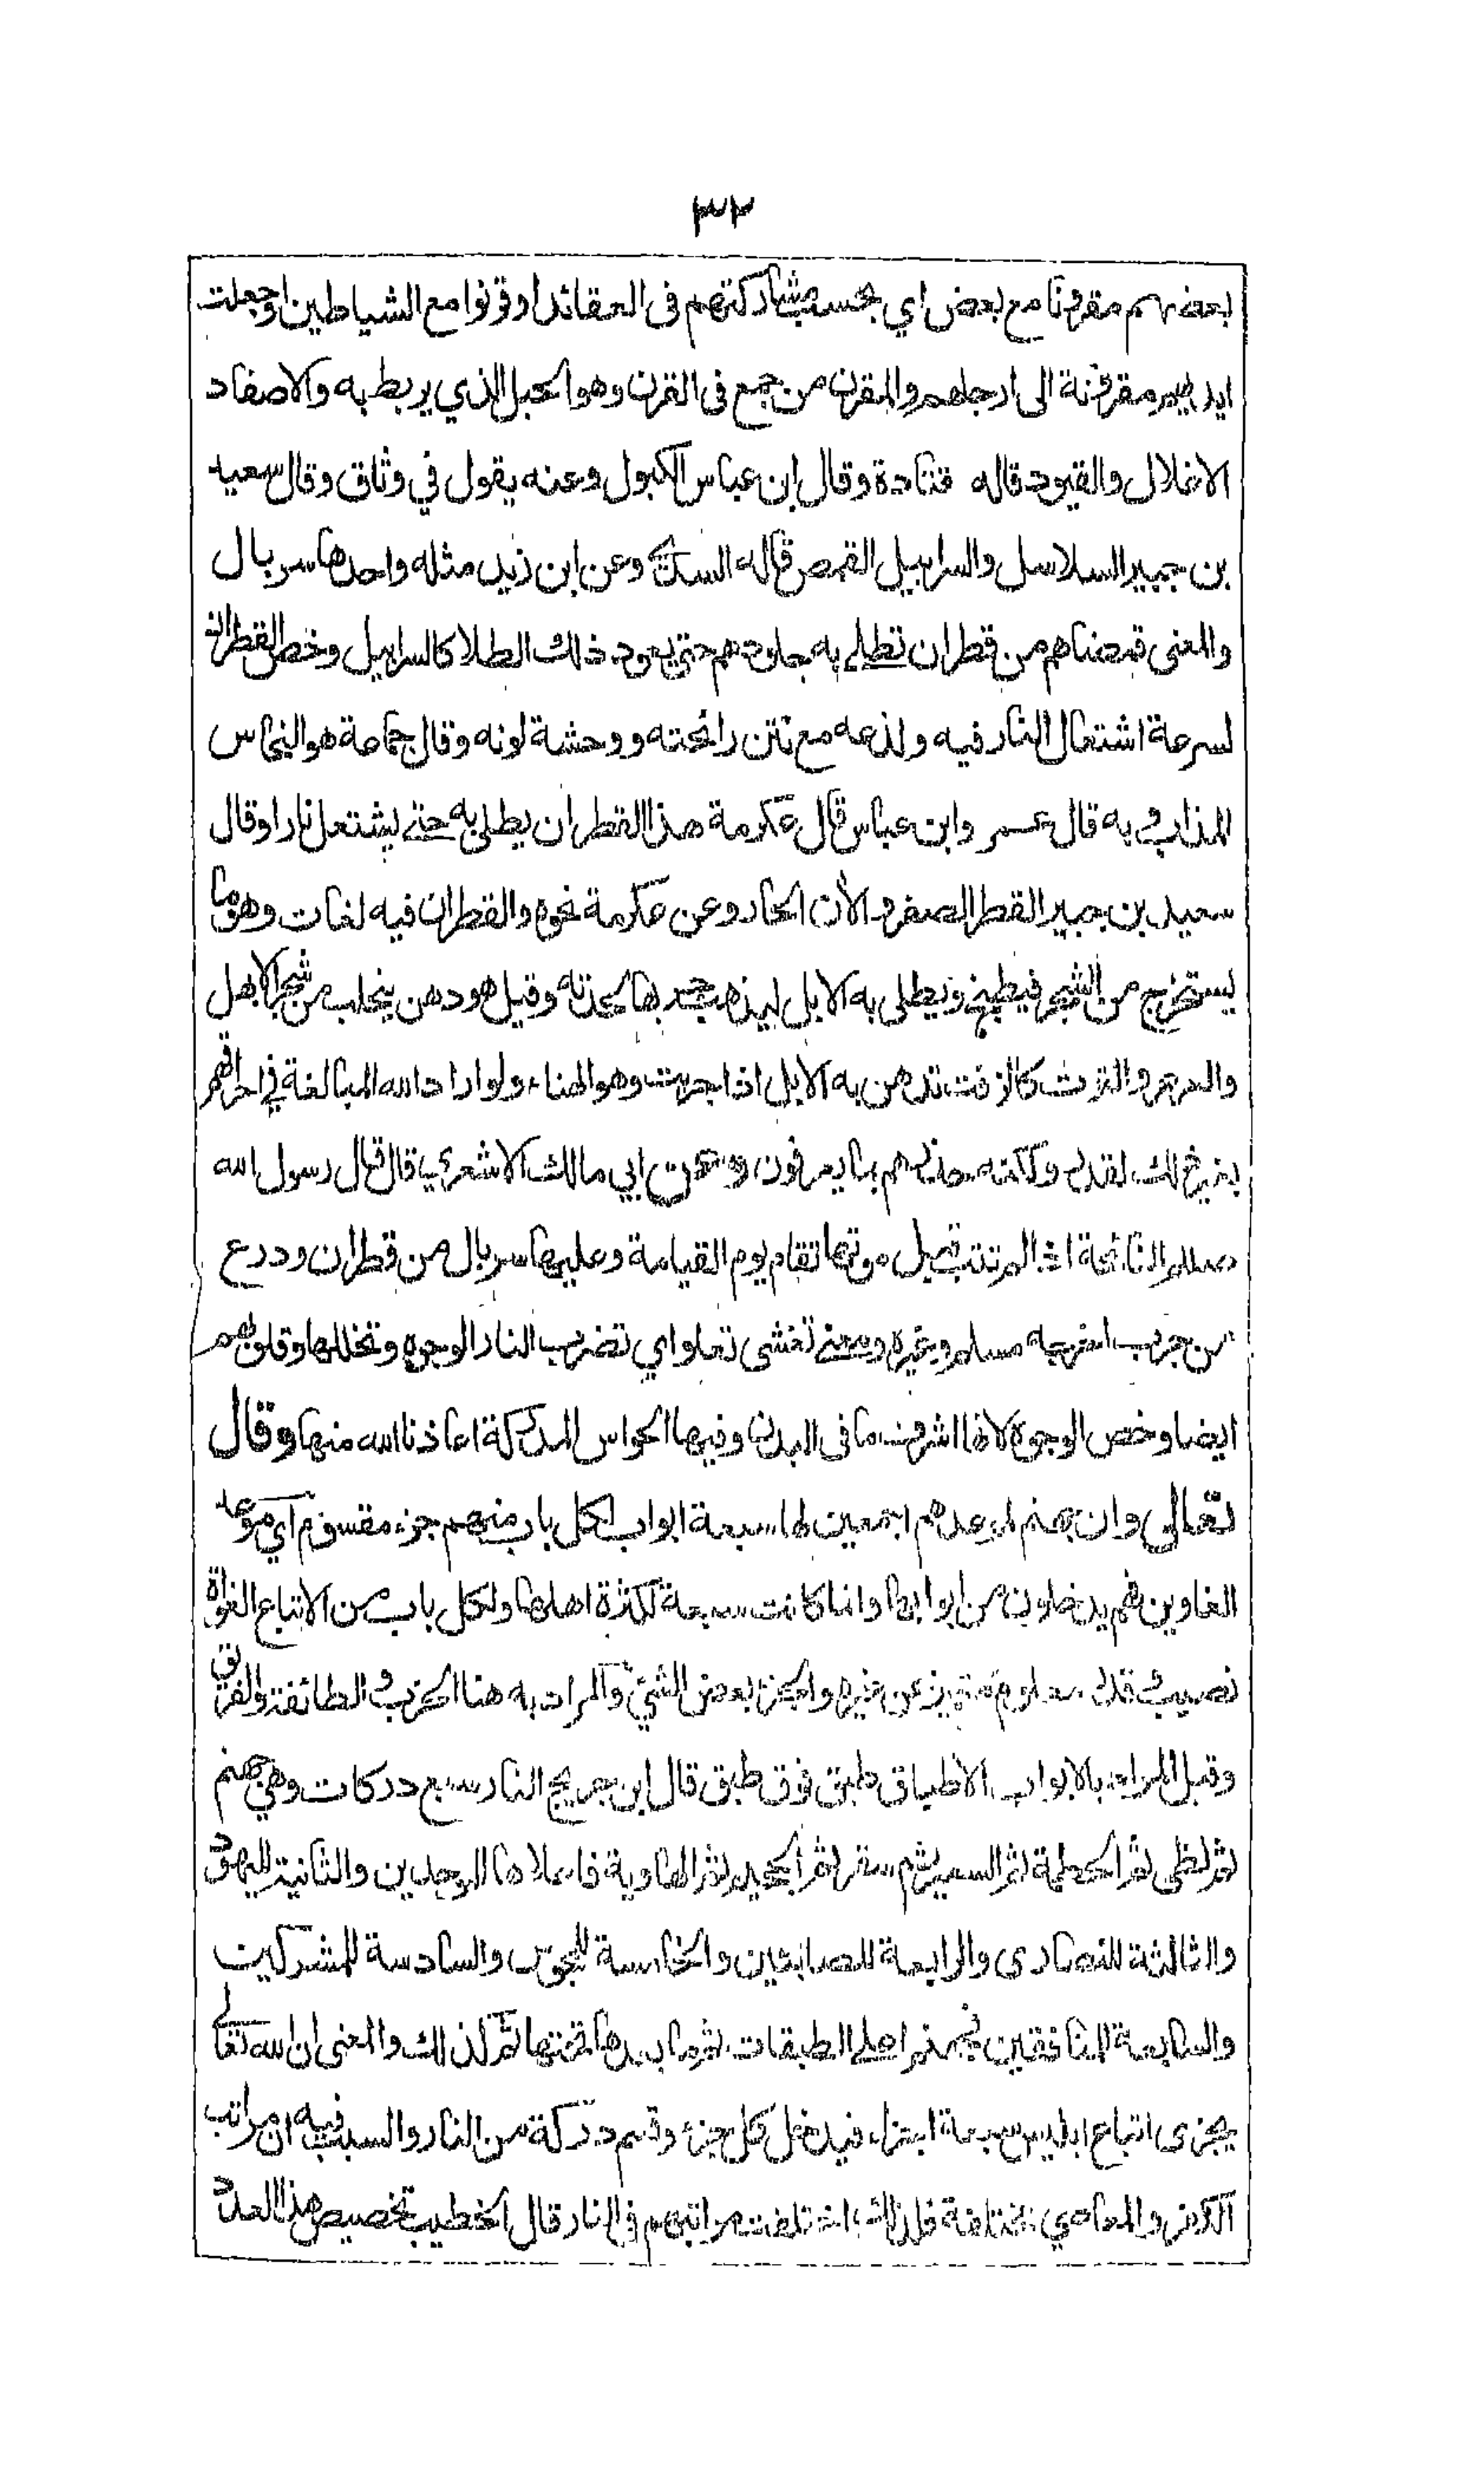 ٣٢
بعضهم مقرونا مع بعض اي بحسب مشاركتهم فى العقائد او قرنوا مع الشياطين او جعلت
ايديهم مقرونة الى ارجلهم والمقرن من جمع فى القرن وهو الحبل الذي يربط به والاصفاد
الاغلال والقيود قاله قتادة وقال ابن عباس الكبول وعنه يقول في وثاق وقال سعيد
بن جبير السلاسل والسرابيل القمص قاله السدي وعن ابن زيد مثله واحدها سربال
والمعنى قمصناهم من قطران تطلى به جلودهم حتى يعود ذلك الطلا كالسرابيل وخص القطران
لسرعة اشتعال النار فيه ولذعه مع نتن رائحته ووحشة لونه وقال جماعة هو النحاس
المذاب وبه قال عمر وابن عباس قال عكرمة هذا القطران يطلى به حتى يشتعل نارا وقال
سعيد بن جبير القطر الصفر والآن الحار وعن عكرمة نحوه والقطران فيه لغات وهو ما
يستخرج من الشجر فيطبخ ويطلى به الابل ليذهب جربها لحدته وقيل هو دهن ينحلب من شجر الابهل
والعرعر والتوت كالزفت تدهن به الابل اذا جربت وهو الهناء ولو اراد الله المبالغة في احراقهم
بغير ذلك لقدر ولكنه حذرهم بما يعرفون وعن ابي مالك الاشعري قال قال رسول الله
صللم النائحة اذا لم تتب قبل موتها تقام يوم القيامة وعليها سربال من قطران ودرع
من جرب اخرجه مسلم وغيره ومعنى تغشى تعلو اي تضرب النار الوجوه وتخللها وقلوبهم
ايضا وخص الوجوه لانها اشرف ما فى البدن وفيها الحواس المدركة اعاذنا الله منها وقال
تعالى وان جهنم لموعدهم اجمعين لها سبعة ابواب لكل باب منهم جزء مقسوم اي موعد
الغاوين فهم يدخلون من ابوابها وانما كانت سبعة لكثرة اهلها ولكل باب من الاتباع الغواة
نصيب وقدر معلوم متميز عن غيره والجزء بعض الشيئ والمراد به هنا الحزب والطائفة والفريق
وقيل المراد بالابواب الاطباق طبق فوق طبق قال ابن جريج النار سبع دركات وهي جهنم
ثم لظى ثم الحطمة ثم السعير ثم سقر ثم الجحيم ثم الهاوية فاعلاها للموحدين والثانية لليهود
والثالثة للنصارى والرابعة للصابئين والخامسة للمجوس والسادسة للمشركين
والسابعة للمنافقين فجهنم اعلى الطبقات ثم ما بعدها تحتها ثم كذلك والمعنى ان الله تعالى
يجزى اتباع ابليس سبعة اجزاء فيدخل كل جزء وقسم دركة من النار والسبب فيه ان مراتب
الكفر والمعاصي مختلفة فلذلك اختلفت مراتبهم فى النار قال الخطيب تخصيص هذا العدد